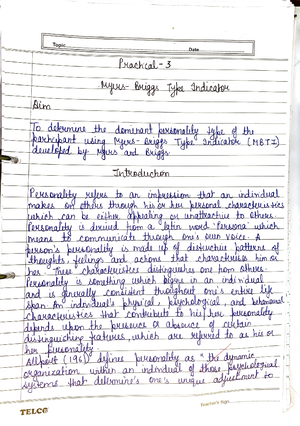 Topic
Date
Practical - 3
Myers-Briggs Type Indicator
Aim
To determine the dominant personality type of the
participant using Myers-Briggs Type Indicator (MBTI)
developed by Myers and Briggs
Introduction
Personality refers to an impression that an individual
makes on others through his or her personal characteristics
which can be either appealing or unattractive to others.
Personality is derived from a latin word 'Persona' which
means to communicate through one's own voice. A
person's personality is made up of distinctive patterns of
thoughts, feelings and actions that characterises him or
her. These characteristics distinguishes one from others.
Personality is something which begins in an individual
and is generally consistent throughout one's entire life
span. An individual's physical, psychological, and behavioral
characteristics that contribute to his/her personality
depends upon the presence or absence of certain
distinguishing features, which are referred to as his or
her personality.
Allport (196) defines personality as "the dynamic
organization within an individual of those psychological
systems that determine's one's unique adjustment to
TELCO
Teacher's Sign